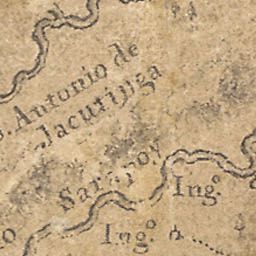 Antonio de
Jacutinga
Sarapoy
Ing.º
Ing.º